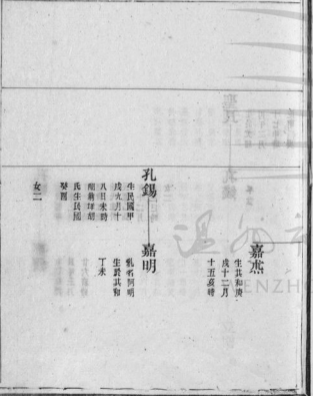 嘉杰
生共和庚
戌十二月
十五亥時
孔錫 嘉明
乳名阿明
生於共和
丁未
生民國甲
戌九月十
八日未時
氏生民國
癸酉
女二